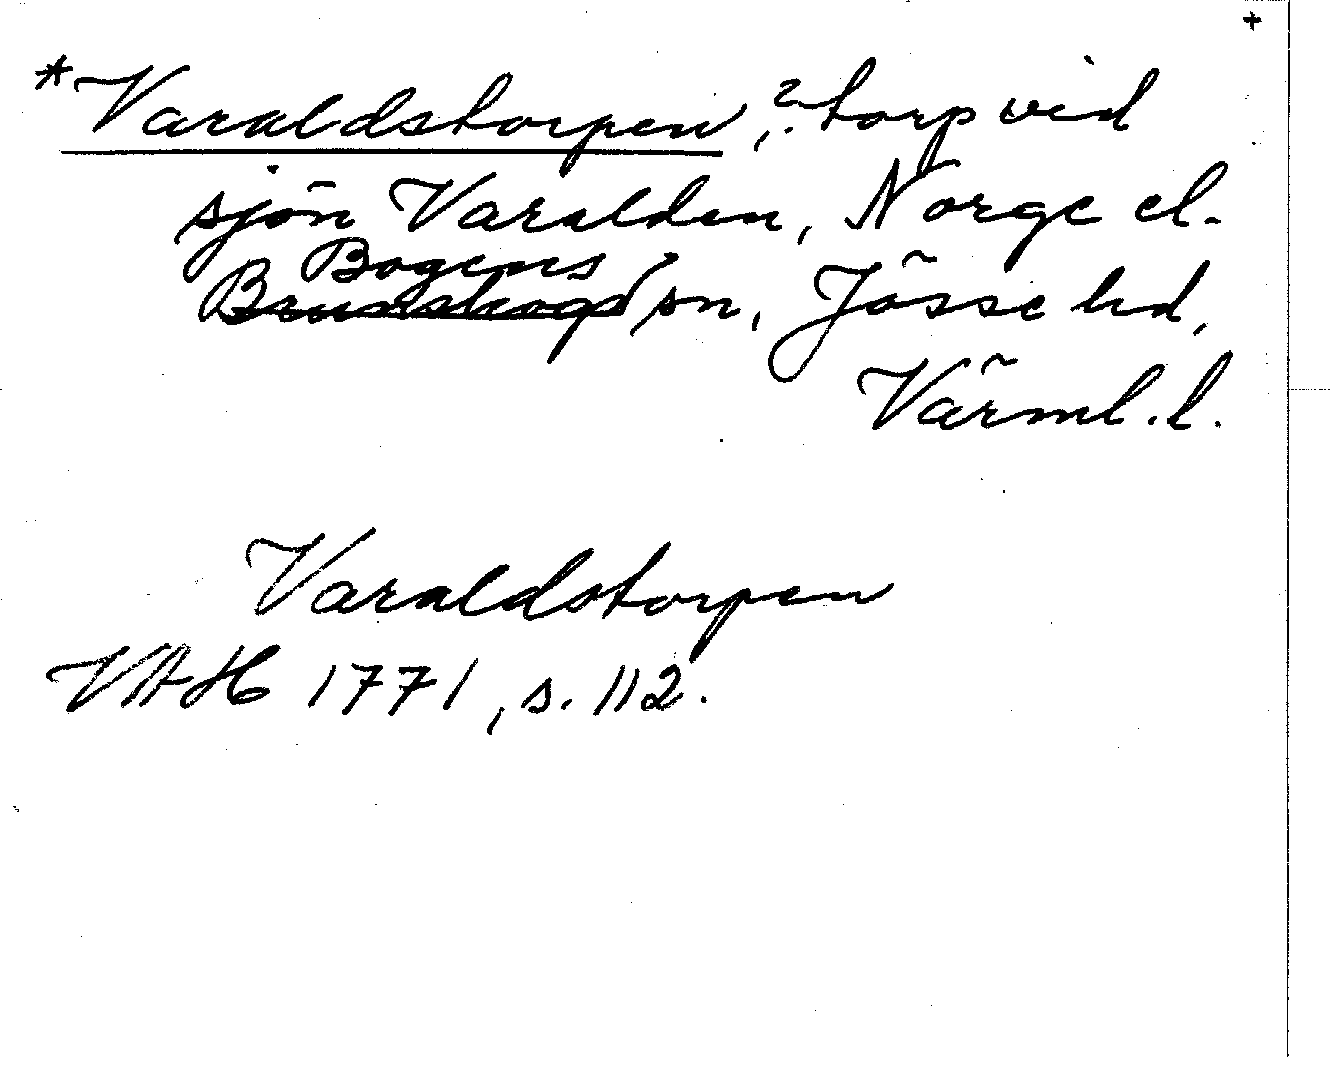 +
*Varaldstorpen, ? torp vid
sjön Varalden, Norge el.
Bogens
Brunskogs sn, Jösse hd,
Värml. l.
Varaldstorpen
VAH 1771, s. 112.